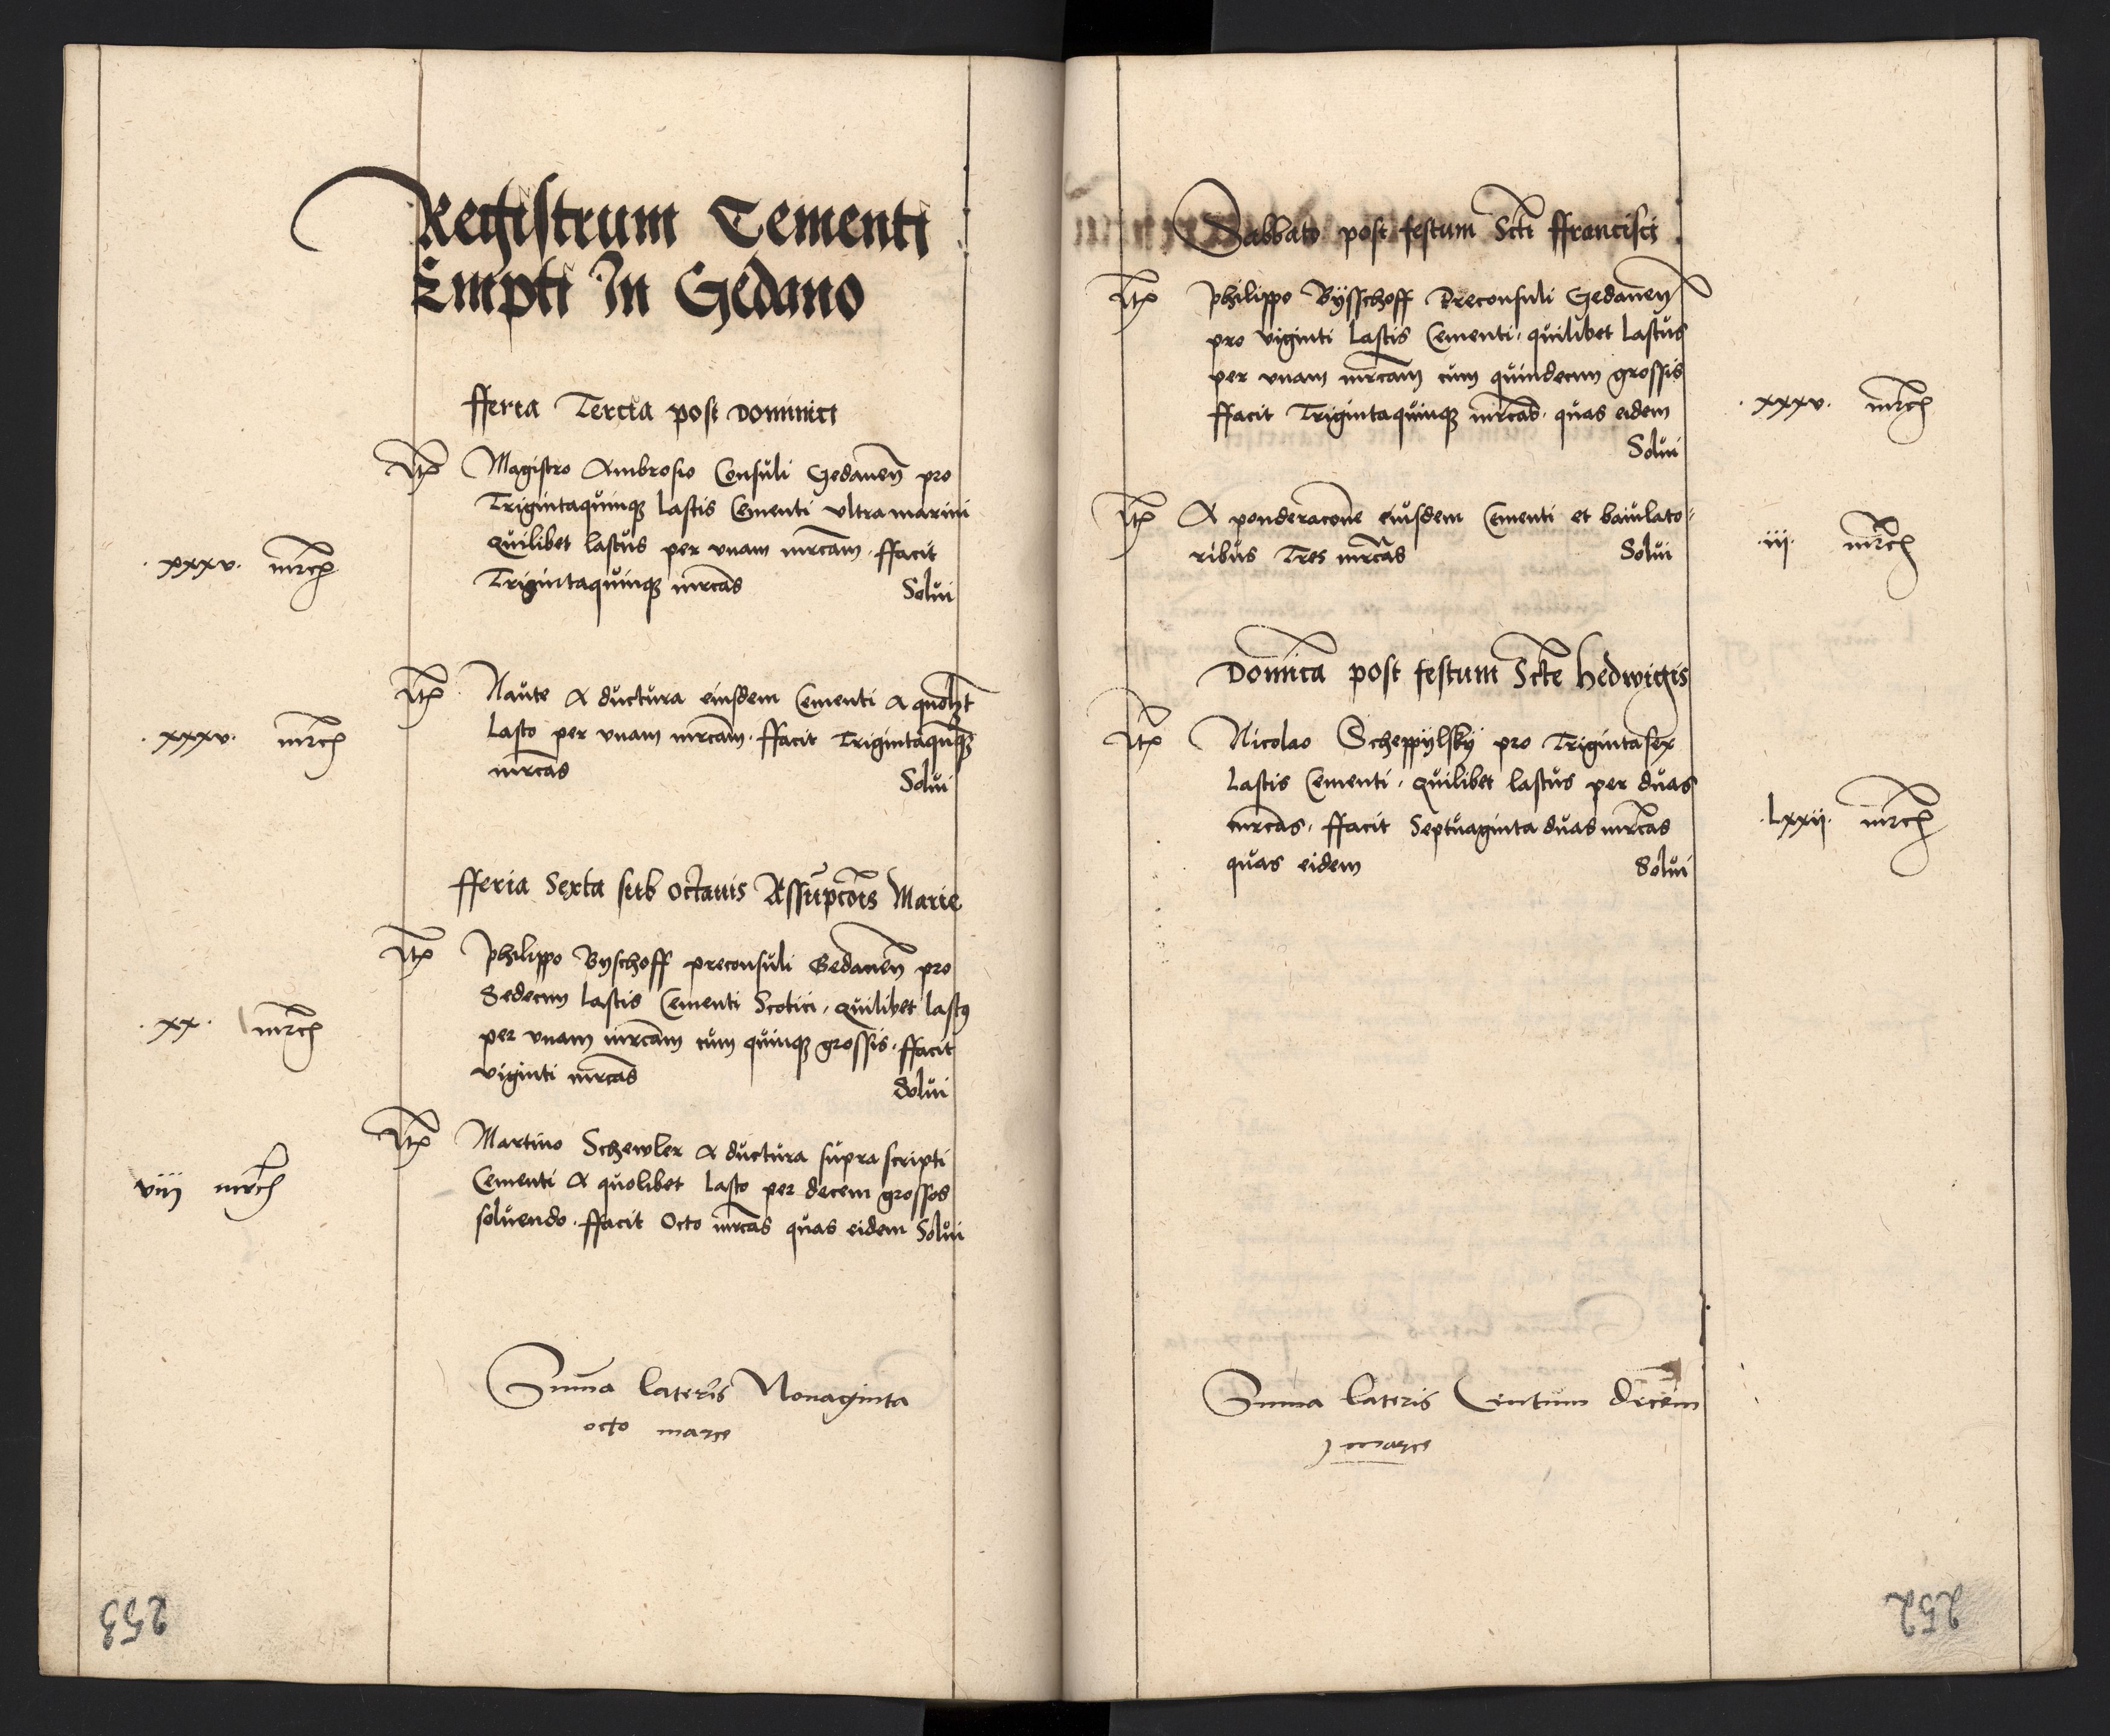 Registrum Cementi
Empti In Gedano
fferia Tercia post Dominici
Itm Magistro Ambrosio Consuli Gedanen pro
Trigintaquinqz lastis Cementi ultramarini
.xxxv. mrc quilibet lastus per vnam mrcam. ffacit
Trigintaquinqz mrcas Solui
Itm Naute A ductura eiusdem Cementi A quolzt
.xxxv. mrc lasto per vnam mrcam. ffacit Trigintaqnqz
mrcas Solui
fferia Sexta sub octauis Assupcois Marie
Itm Philippo Byschoff preconsuli Gedanen pro
Sedecim lastis Cementi Scotici, quilibet last9
.xx. mrc per vnam mrcam cum quinqz grossis. ffacit
viginti mrcas Solui
Itm Martino Schewler A ductura supra scripti
viij mrc Cementi A quolibet lasto per decem grossos
soluendo. ffacit Octo mrcas quas eidem Solui
Suma lateris Nonaginta
octo marce
253
Sabbato post festum Scti ffrancisci
Itm Philippo Bysschoff Preconsuli Gedanen
pro viginti lastis Cementi, quilibet lastus
per vnam mrcam cum quindecim grossis
ffacit Trigintaquinqz mrcas. quas eidem .xxxv. mrc
Solui
Itm A ponderacone eiusdem Cementi et baiulato
ribus Tres mrcas Solui .iii. mrc
Domica post festum Scte Hedwigis
Itm Nicolao Scheppylsky pro Trigintasex
lastis Cementi, quilibet lastus per duas
mrcas, ffacit Septuaginta duas mrcas .lxxij. mrc
quas eidem Solui
Suma lateris Centum decem
marce
252